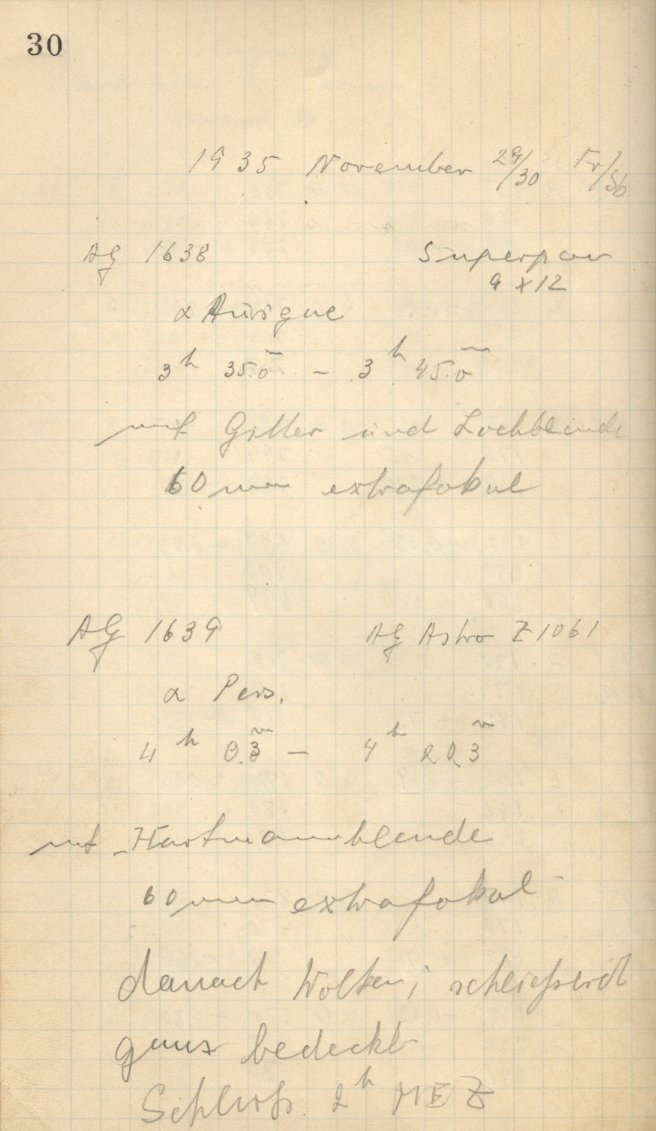 30
1935 November 29/30 Fr/Sb
AG 1638 Superpan
9 x 12
α Aurigae
3h 35.0m – 3h 45.0m
mit Gitter und Lochblende
60 mm extrafokal
AG 1639 AG Astro Z 1061
α Pers.
4h 0.3m – 4h 20.3m
mit Hartmannblende
60 mm extrafokal
danach Wolken; schliesslich
ganz bedeckt
Schluß 2h MEZ